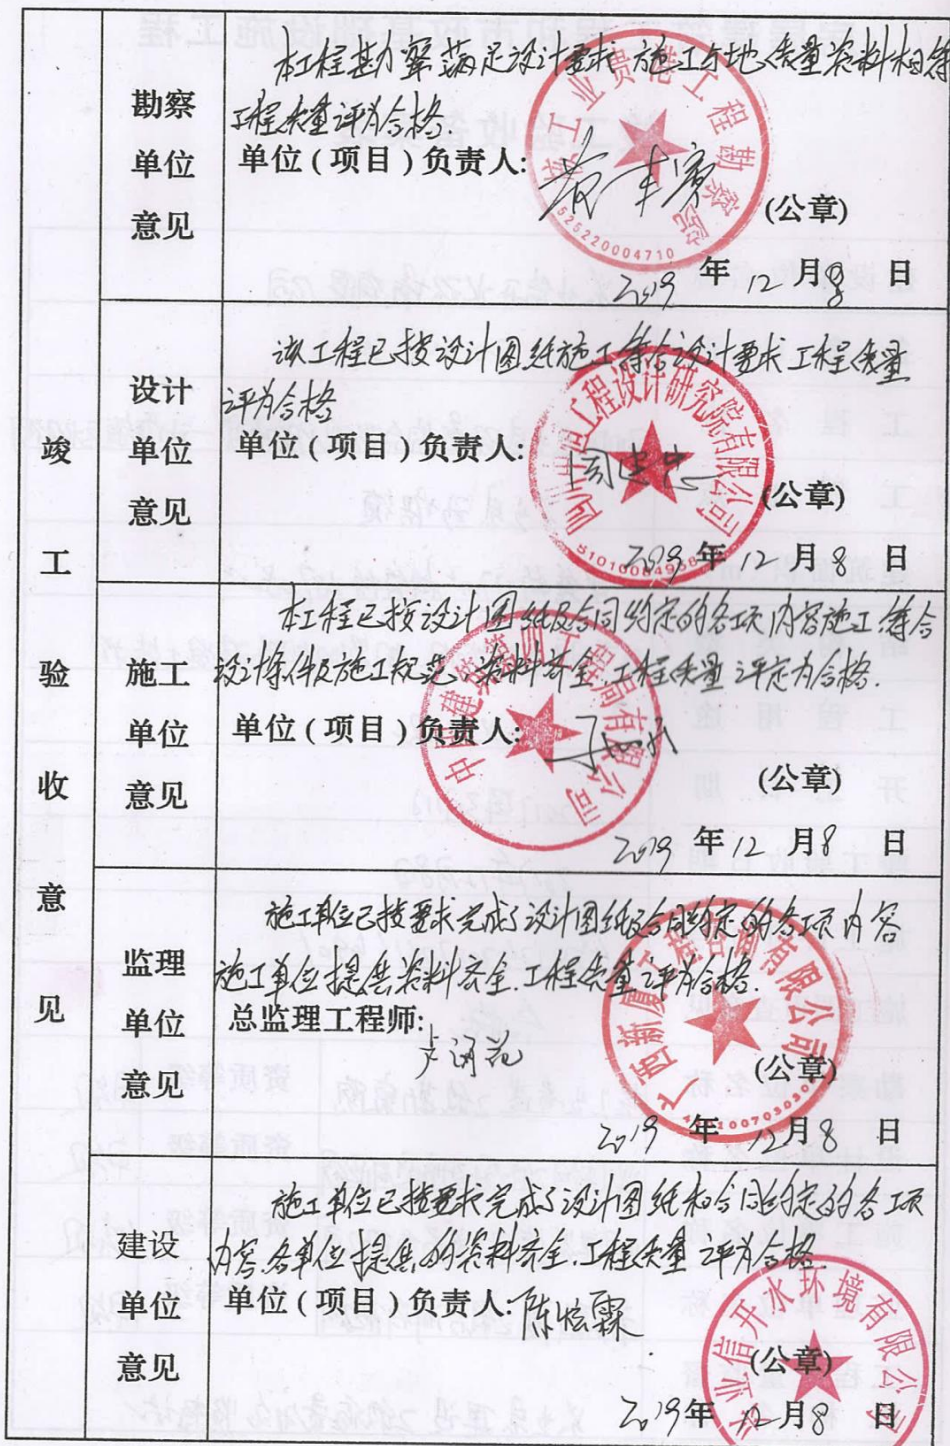 竣工验收意见
勘察单位意见
本工程勘察满足设计要求,施工与地质资料相符
工程质量评为合格.
单位(项目)负责人:
(公章)
2019年12月8日
工业贵港工程勘察院
525220004710
设计单位意见
该工程已按设计图纸施工,符合设计要求,工程质量
评为合格
单位(项目)负责人:
(公章)
2019年12月8日
工程设计研究院有限公司
施工单位意见
本工程已按设计图纸及合同约定的各项内容施工,符合
设计条件及施工规范,资料齐全,工程质量评定为合格.
单位(项目)负责人:
(公章)
2019年12月8日
中国建筑第四工程局有限公司
监理单位意见
施工单位已按要求完成了设计图纸及合同约定的各项内容
施工单位提供资料齐全.工程质量评为合格.
总监理工程师:
(公章)
2019年12月8日
广西新厦工程咨商有限公司
建设单位意见
施工单位已按要求完成了设计图纸和合同约定的各项
内容,各单位提供的资料齐全,工程质量评为合格.
单位(项目)负责人:陈炫霖
(公章)
2019年12月8日
业信开水环境有限公司